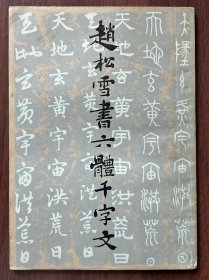 趙松雪書六體千字文
天地玄黃宇宙洪荒日
天地玄黃宇宙洪荒日
天地玄黃宇宙洪荒日
天地玄黃宇宙洪荒日